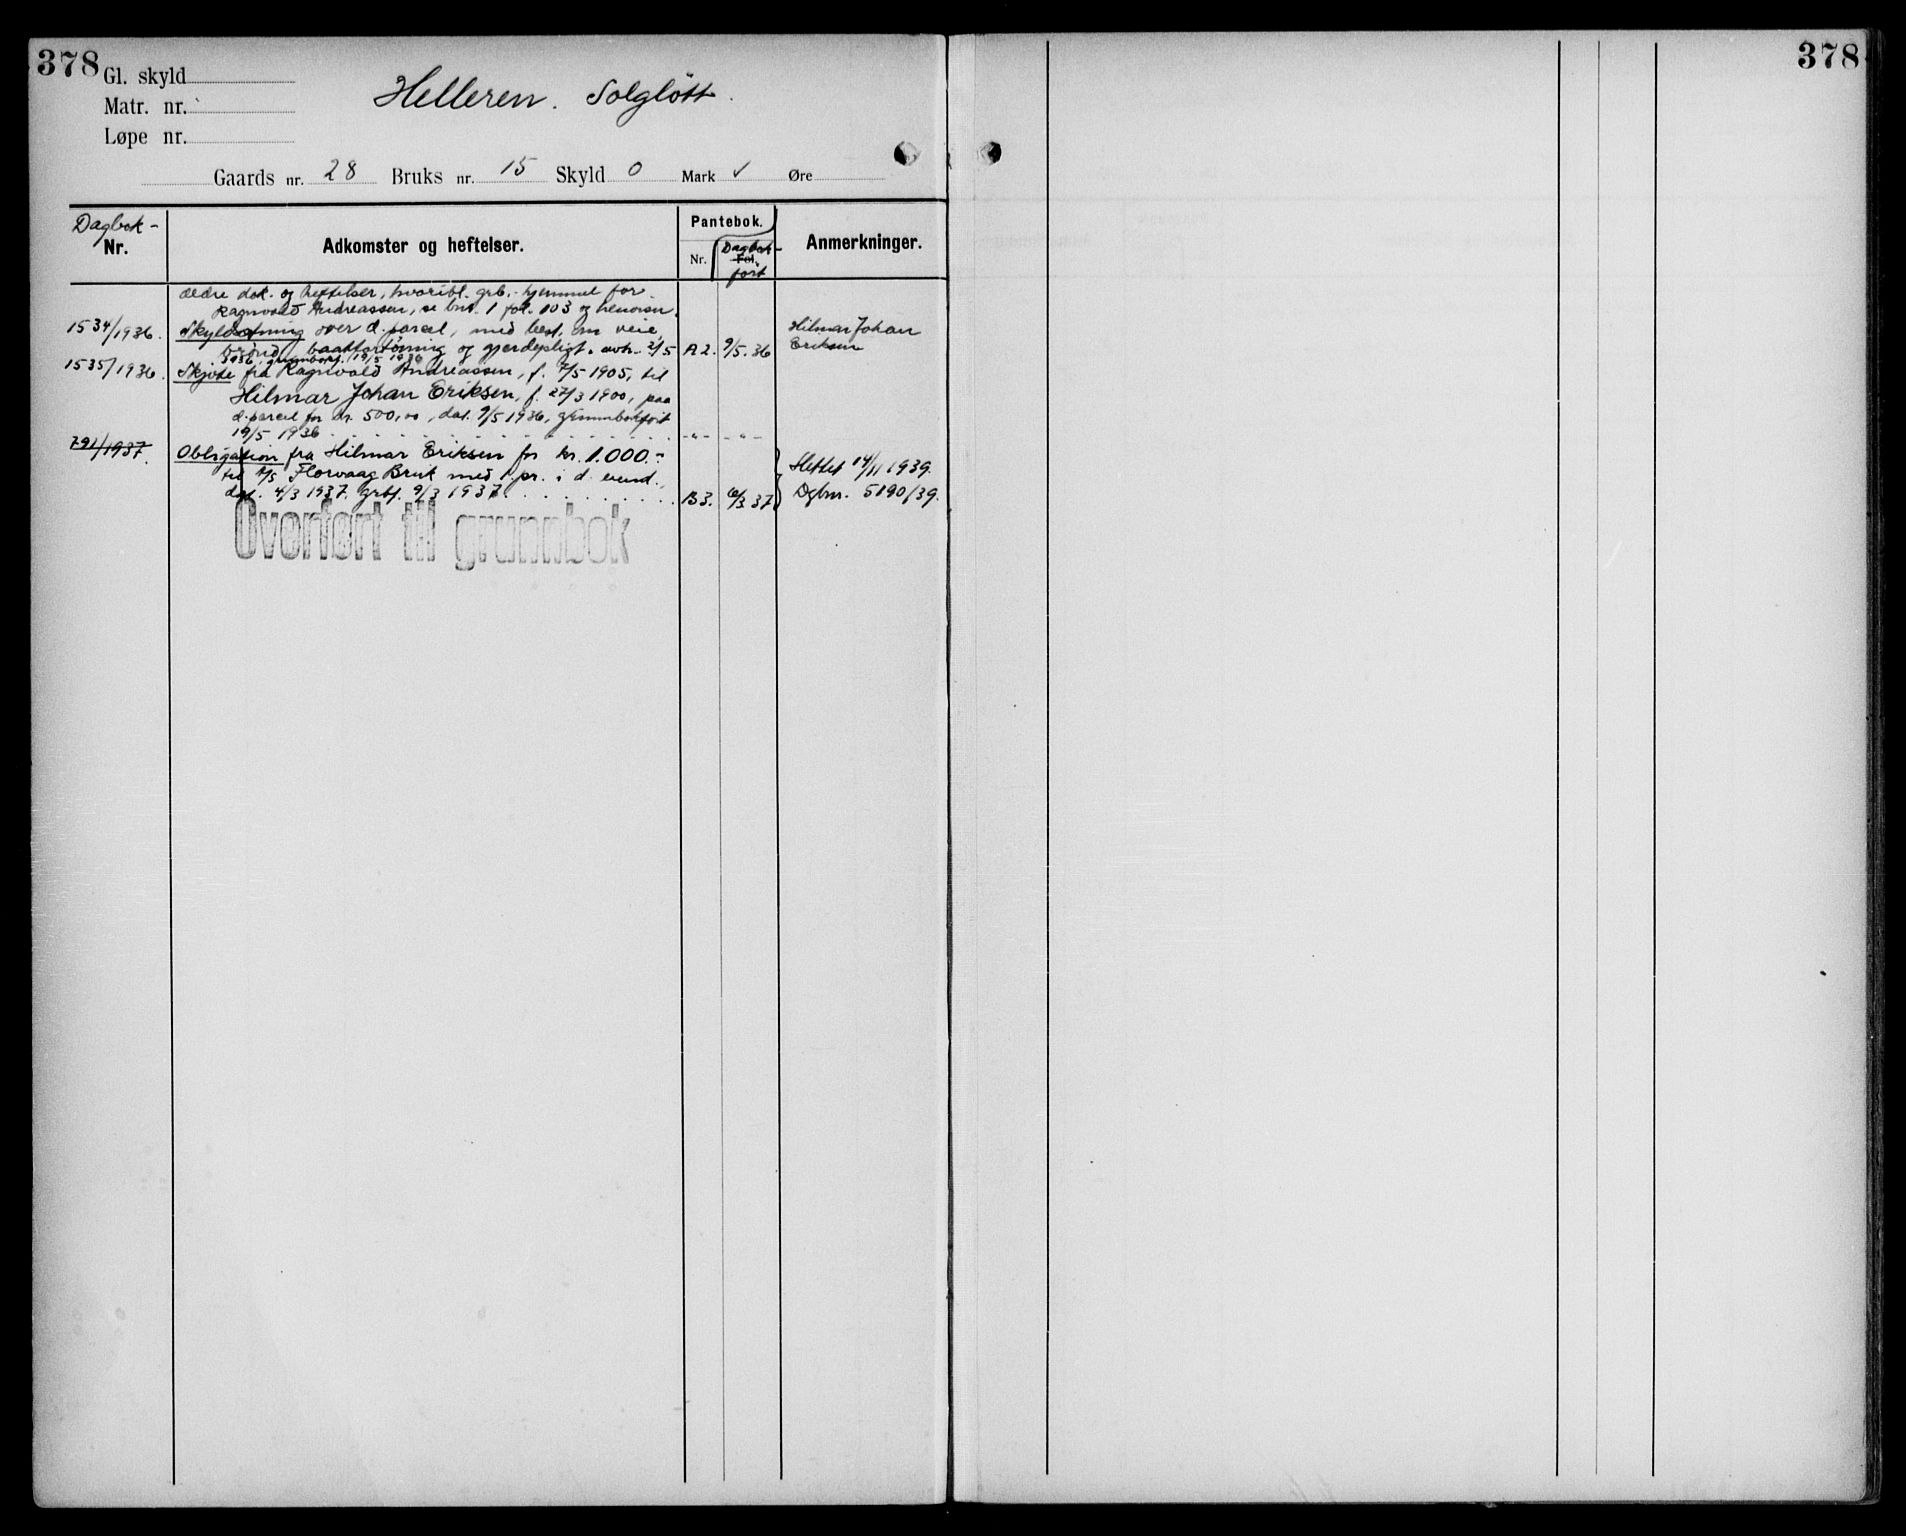 378
378
Gl. skyld
Matr. nr.
Løpe nr.
Helleren. Solgløtt.
Gaards nr. 28 Bruks nr. 15 Skyld 0 Mark ✓ Øre
Dagbok-
Nr.
Adkomster og heftelser.
Pantebok.
Nr.
Dagbok-
Fol.
ført
Anmerkninger.
ældre dok. og heftelser, hvoribl. grb.-hjemmel for
Ragnvald Andreassen, se bnr. 1 fol. 103 og henvisn.
1534/1936. Skyldd over d. parcel, med best. om veie, Hilmar Johan
brønd, baatfortøining og gjerdepligt. avh. 2/5 A 2. 9/5. 36 Eriksen
1936, grunnbokf. 19/5 1936
1535/1936. Skjøte fra Ragnvald Andreassen, f. 7/5 1905, til
Hilmar Johan Eriksen, f. 27/3 1900, paa
d. parcel for kr. 500,00, dat. 9/5 1936, grunnbokført
19/5 1936 -"- -"-
791/1937. Obligation fra Hilmar Eriksen for kr. 1.000.-
til A/S Florvaag Bruk med 1. pr. i d. eiend., Slettet 14/11 1939.
dat. 4/3 1937. grbf. 9/3 1937. B 3. 6/3 37 Dgbnr. 5190/39.
Overført til grunnbok